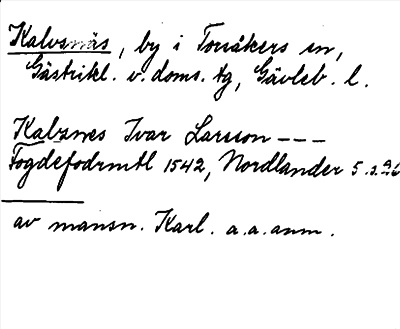 Kalvsnäs, by i Torsåkers sn,
Gästrikl. v. doms. tg, Gävleb. l.
Kalznes Ivar Larsson ---
Fogdefodrmtl 1542, Nordlander 5. s. 96
av mansn. Karl. a.a. anm.